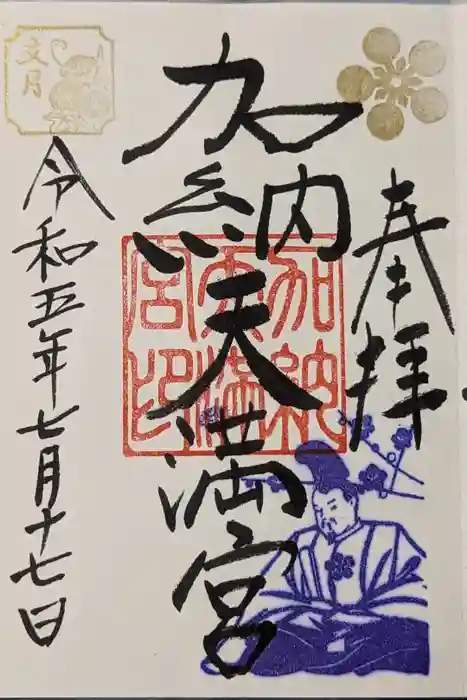 奉拝
加納天満宮
加納
天満
宮印
令和五年七月十七日
文月